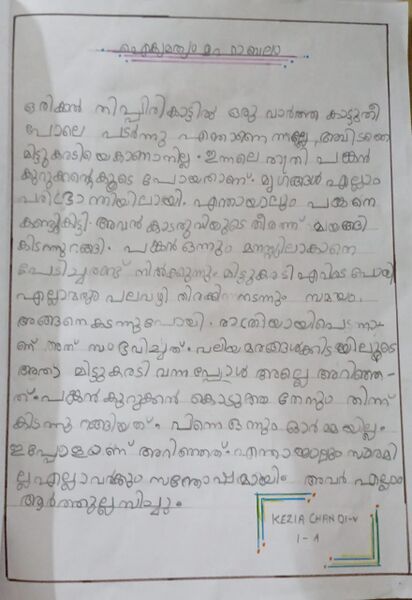 ഐക്യമത്യം മഹാബലം
ഒരിക്കൽ തിപ്പിരികാട്ടിൽ ഒരു വാർത്ത കാട്ടുതീ
പോലെ പടർന്നു എന്താണെന്നല്ലേ, അവിടത്തെ
മിട്ടുകരടിയെകാണാനില്ല. ഇന്നലെ രാത്രി പങ്കൻ
കുറുക്കന്റെകൂടെ പോയതാണ്. മൃഗങ്ങൾ എല്ലാം
പരിഭ്രാന്തിയിലായി. എന്തായാലും പങ്കനെ
കണ്ടുകിട്ടി. അവൻ കാടരുവിയുടെ തീരത്ത് മയങ്ങി
കിടന്നുറങ്ങി. പങ്കൻ ഒന്നും മനസ്സിലാകാനെ
പേടിച്ചരണ്ട് നിൽക്കുന്നു. മിട്ടുകരടി എവിടെ പോയി
എല്ലാവരും പലവഴി തിരക്കിനടന്നും സമയം
അങ്ങനെകടന്നുപോയി. രാത്രിയായിപെട്ടന്നാ-
ണ് അത് സംഭവിച്ചത്. വലിയമരങ്ങൾക്കിടയിലൂടെ
അതാ മിട്ടുകരടി വന്നപ്പോൾ അല്ലെ അറിഞ്ഞ-
ത്. പങ്കൻകുറുക്കൻ കൊടുത്ത തേനും തിന്ന്
കിടന്നുറങ്ങിയത്. പിന്നെ ഒന്നും ഓർമ്മയില്ല.
ഇപ്പോളാണ് അറിഞ്ഞത്. എന്തായാലും സാരമി
ല്ലഎല്ലാവർക്കും സന്തോഷമായി. അവർ എല്ലാം
ആർത്തുല്ലസിച്ചു.
KEZIA CHANDI-V
I-A